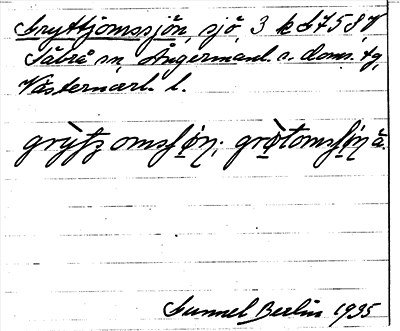 Gryttjomssjön, sjö, 3 k
Säbrå sn, Ångermanl. s. doms. tg,
Västernorrl. l.
grỳtjomsʃøn; gròtomsʃøn ä.
Gunnel Berlin 1935